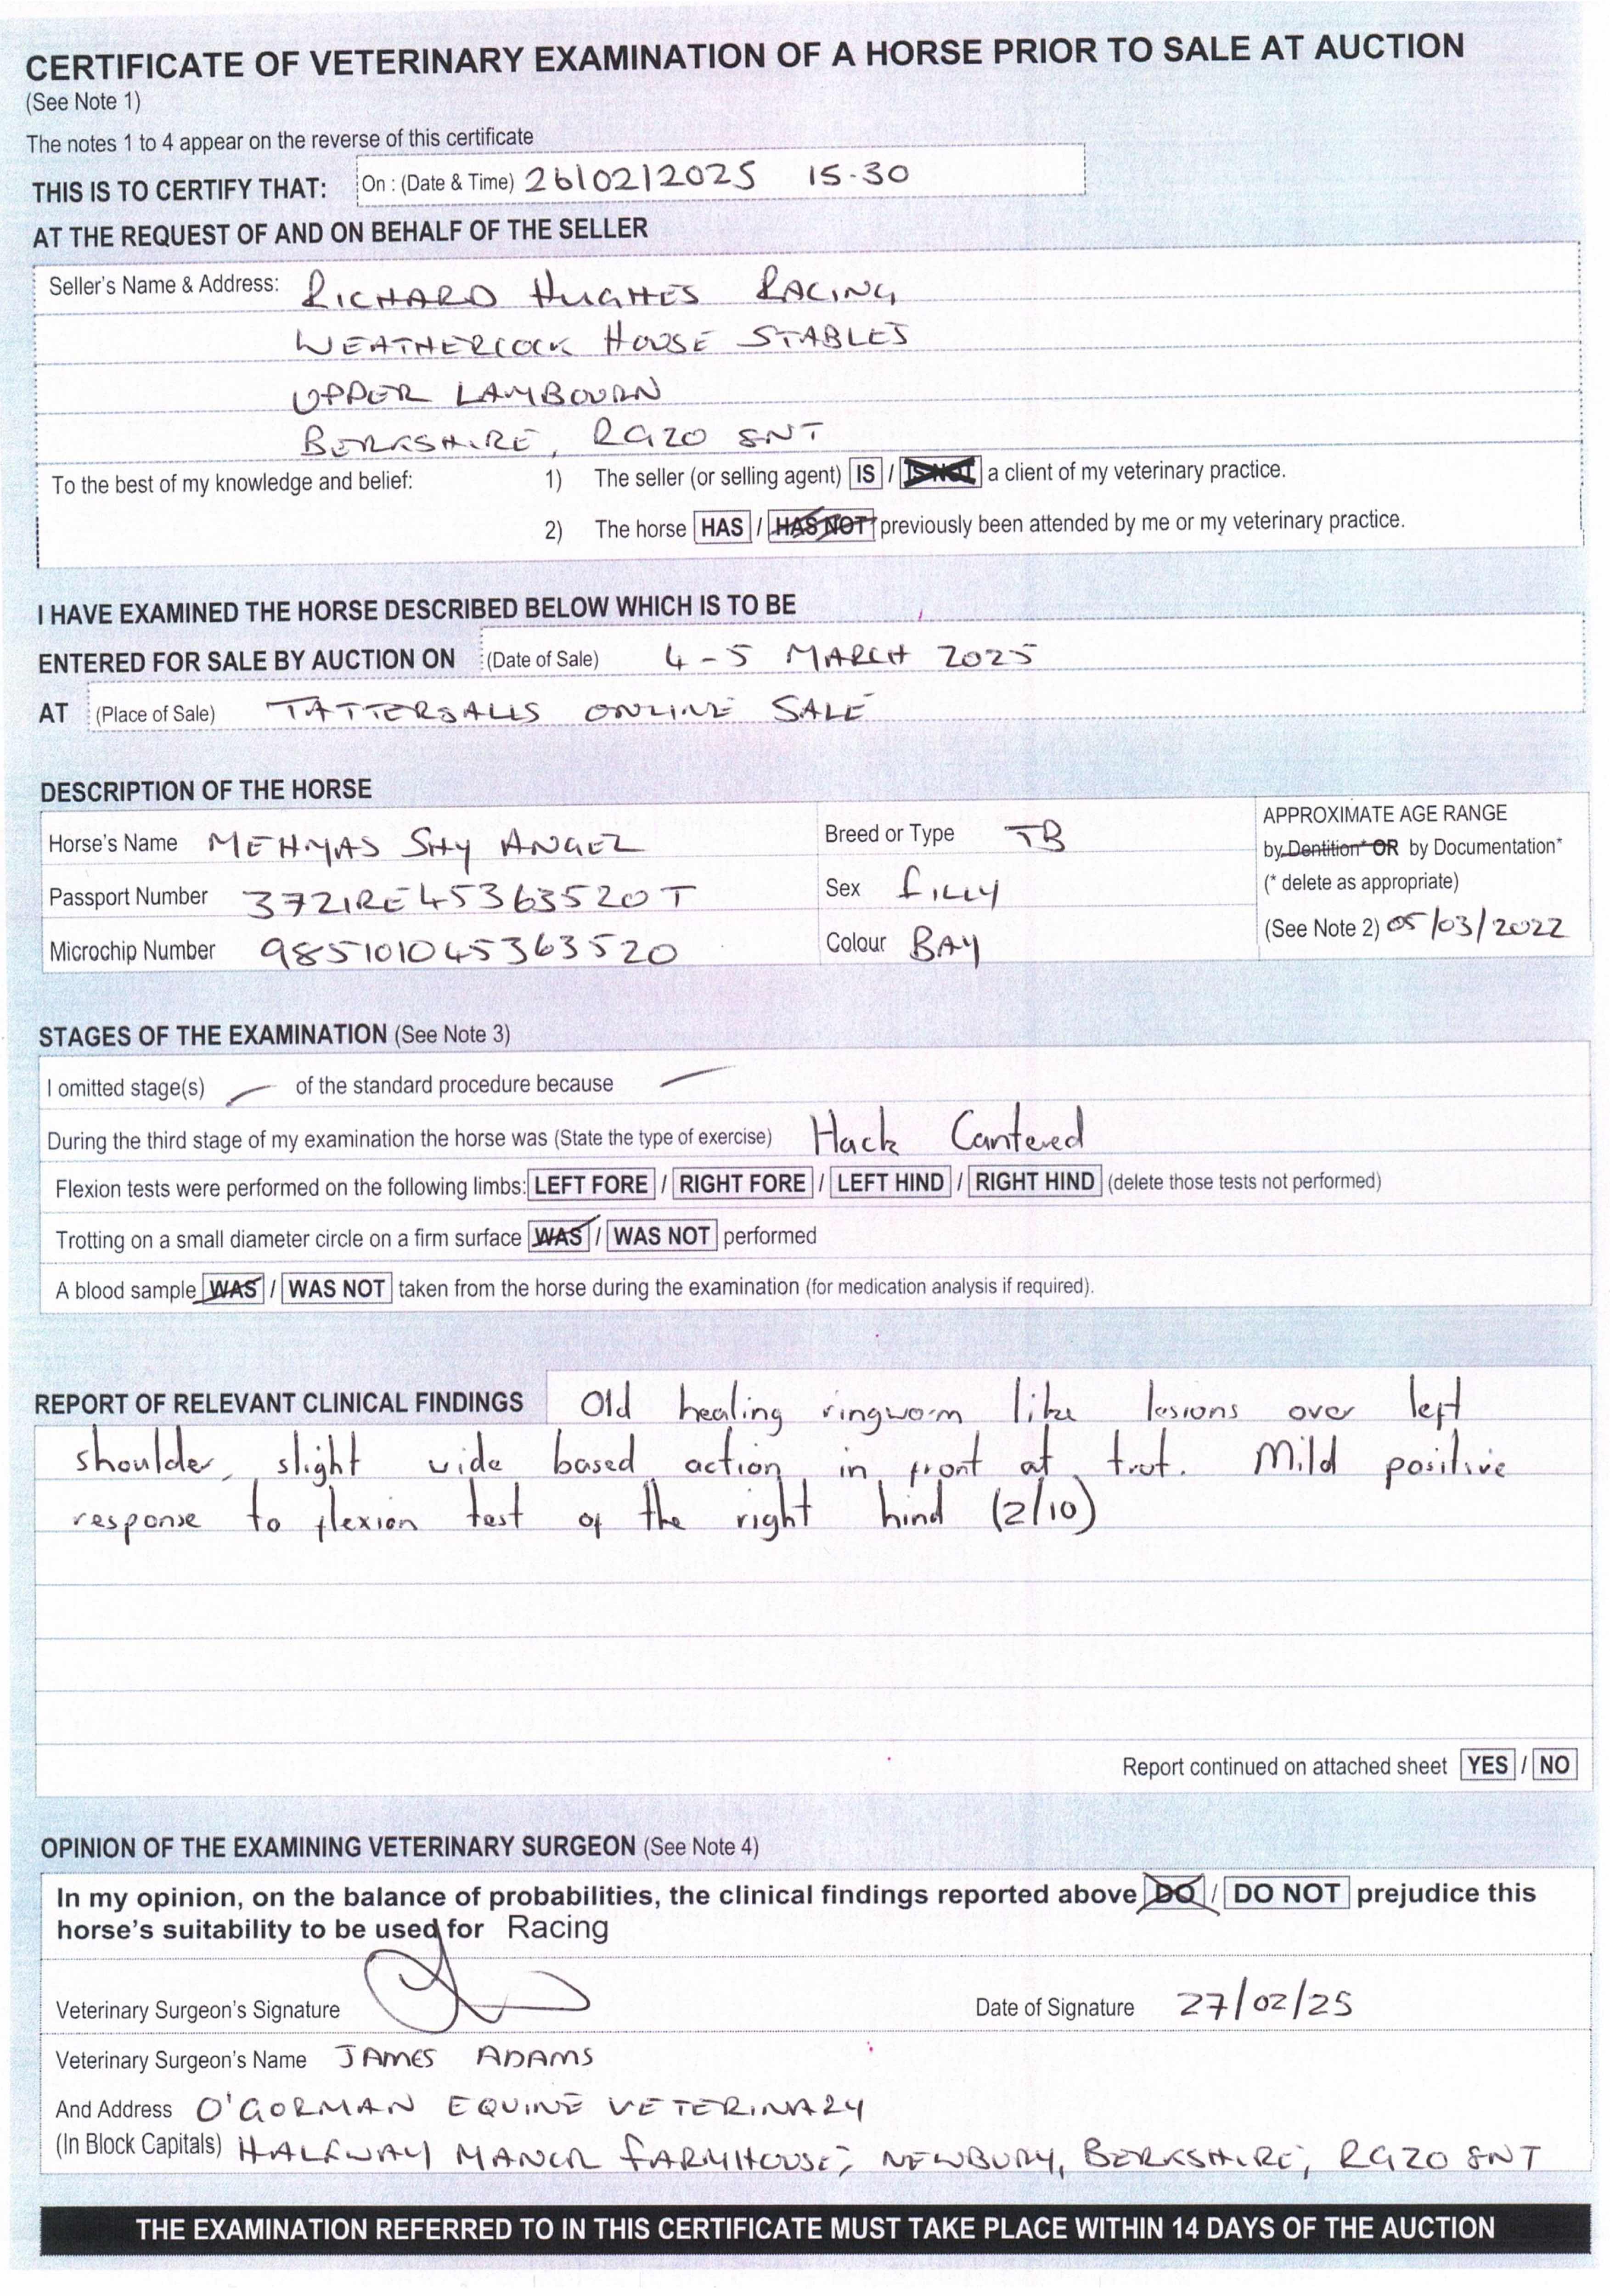 CERTIFICATE OF VETERINARY EXAMINATION OF A HORSE PRIOR TO SALE AT AUCTION
(See Note 1)
The notes 1 to 4 appear on the reverse of this certificate
THIS IS TO CERTIFY THAT: On : (Date & Time) 26/02/2025 15-30
AT THE REQUEST OF AND ON BEHALF OF THE SELLER
Seller's Name & Address: RICHARD HUGHES RACING
WEATHERCOCK HOUSE STABLES
UPPER LAMBOURN
BERKSHIRE, RG20 8NT
To the best of my knowledge and belief: 1) The seller (or selling agent) IS / IS NOT a client of my veterinary practice.
2) The horse HAS / HAS NOT previously been attended by me or my veterinary practice.
I HAVE EXAMINED THE HORSE DESCRIBED BELOW WHICH IS TO BE
ENTERED FOR SALE BY AUCTION ON (Date of Sale) 4-5 MARCH 2025
AT (Place of Sale) TATTERSALLS ONLINE SALE
DESCRIPTION OF THE HORSE
Horse's Name MEHMAS SHY ANGEL Breed or Type TB APPROXIMATE AGE RANGE
by Dentition* OR by Documentation*
Passport Number 372IRE45363520T Sex FILLY (* delete as appropriate)
Microchip Number 985101045363520 Colour BAY (See Note 2) 05/03/2022
STAGES OF THE EXAMINATION (See Note 3)
I omitted stage(s) — of the standard procedure because —
During the third stage of my examination the horse was (State the type of exercise) Hack Cantered
Flexion tests were performed on the following limbs: LEFT FORE / RIGHT FORE / LEFT HIND / RIGHT HIND (delete those tests not performed)
Trotting on a small diameter circle on a firm surface WAS / WAS NOT performed
A blood sample WAS / WAS NOT taken from the horse during the examination (for medication analysis if required).
REPORT OF RELEVANT CLINICAL FINDINGS Old healing ringworm like lesions over left
shoulder, slight wide based action in front at trot. Mild positive
response to flexion test of the right hind (2/10)
Report continued on attached sheet YES / NO
OPINION OF THE EXAMINING VETERINARY SURGEON (See Note 4)
In my opinion, on the balance of probabilities, the clinical findings reported above DO / DO NOT prejudice this
horse's suitability to be used for Racing
Veterinary Surgeon's Signature Date of Signature 27/02/25
Veterinary Surgeon's Name JAMES ADAMS
And Address O'GORMAN EQUINE VETERINARY
(In Block Capitals) HALFWAY MANOR FARMHOUSE, NEWBURY, BERKSHIRE, RG20 8NT
THE EXAMINATION REFERRED TO IN THIS CERTIFICATE MUST TAKE PLACE WITHIN 14 DAYS OF THE AUCTION